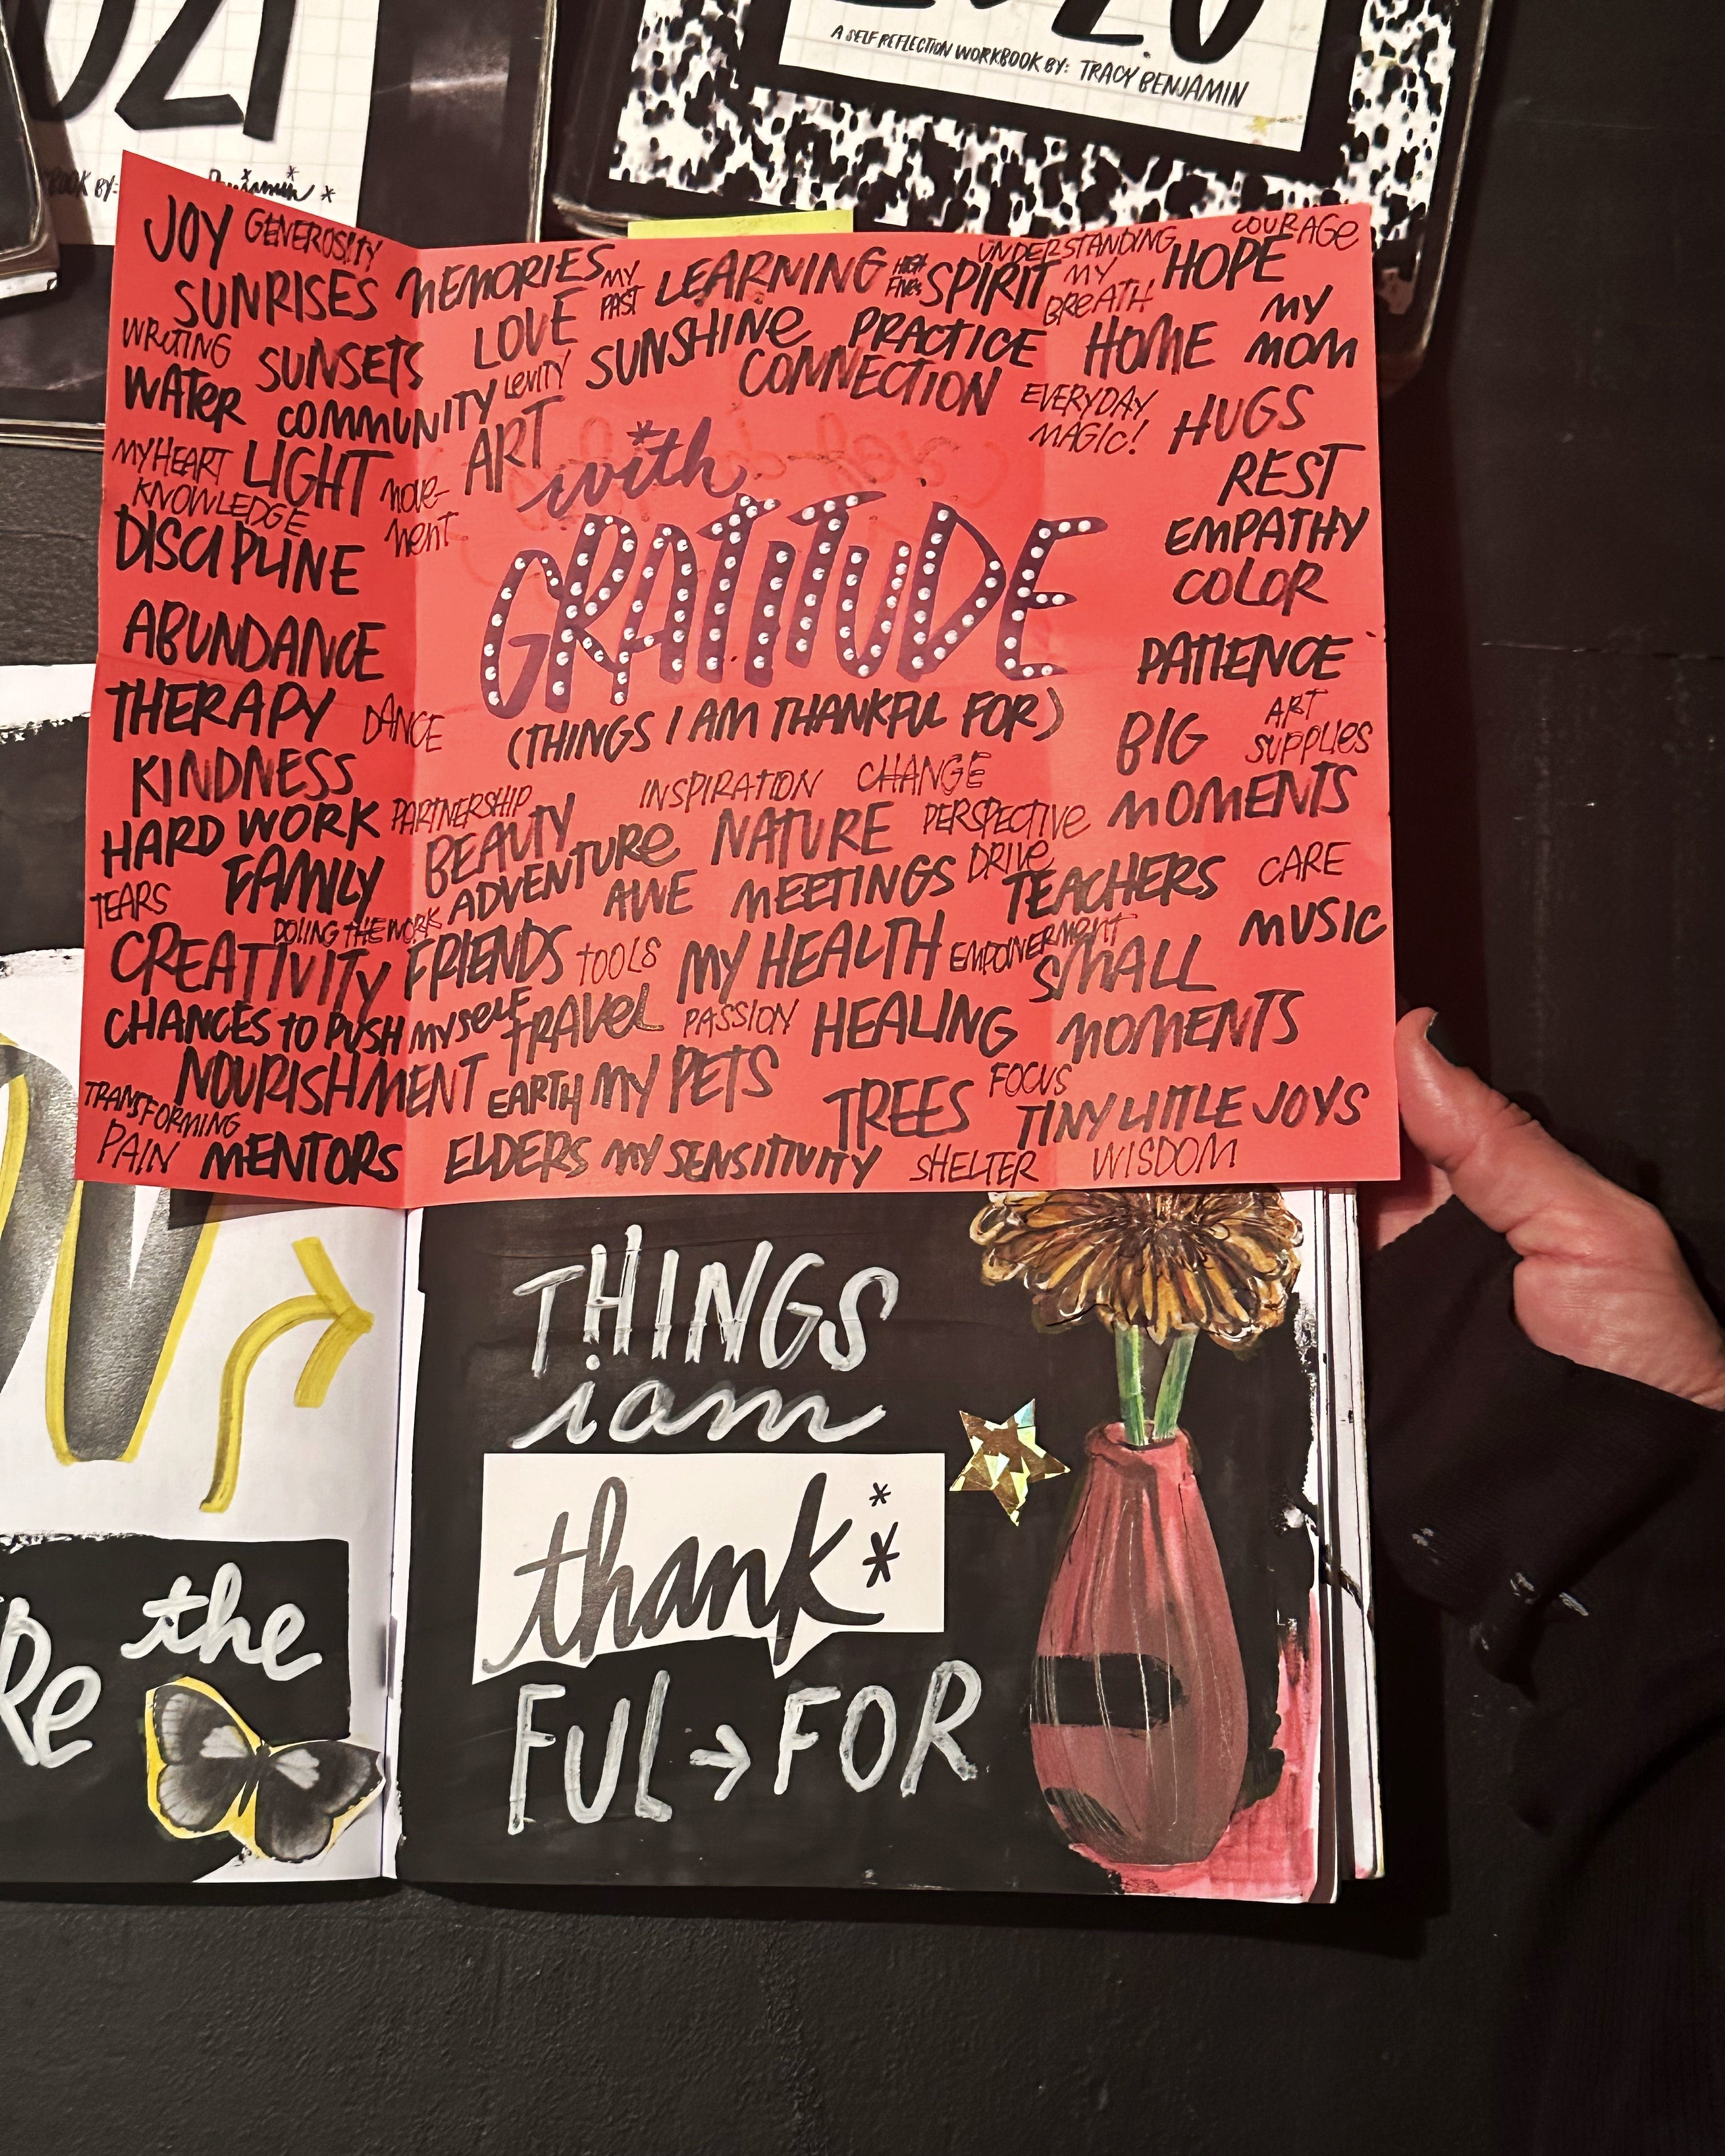 021
BOOK BY: Benjamin *
2020
A SELF REFLECTION WORKBOOK BY: TRACY BENJAMIN
JOY GENEROSITY
SUNRISES
WRITING
SUNSETS
WATER
COMMUNITY
MY HEART
LIGHT
MOVE-
MENT
KNOWLEDGE
DISCIPLINE
ABUNDANCE
THERAPY
DANCE
KINDNESS
HARD WORK
PARTNERSHIP
FAMILY
TEARS
DOING THE WORK
CREATIVITY
CHANCES TO PUSH MYSELF
NOURISHMENT
TRANSFORMING
PAIN
MENTORS
MEMORIES
MY
PAST
LEARNING
HIGH
FIVES
SPIRIT
UNDERSTANDING
COURAGE
MY
BREATH
HOPE
LOVE
LEVITY
SUNSHINE
PRACTICE
CONNECTION
HOME
MY
MOM
ART
EVERYDAY
MAGIC!
HUGS
REST
EMPATHY
COLOR
PATIENCE
*with
GRATITUDE
(THINGS I AM THANKFUL FOR)
BIG
MOMENTS
ART
SUPPLIES
INSPIRATION
CHANGE
BEAUTY
ADVENTURE
NATURE
PERSPECTIVE
AWE
MEETINGS
DRIVE
TEACHERS
CARE
MUSIC
FRIENDS
TOOLS
MY HEALTH
EMPOWERMENT
SMALL
MOMENTS
TRAVEL
PASSION
HEALING
EARTH
MY PETS
TREES
FOCUS
TINY LITTLE JOYS
ELDERS
MY SENSITIVITY
SHELTER
WISDOM
Re the
THINGS
i am
thank **
FUL → FOR